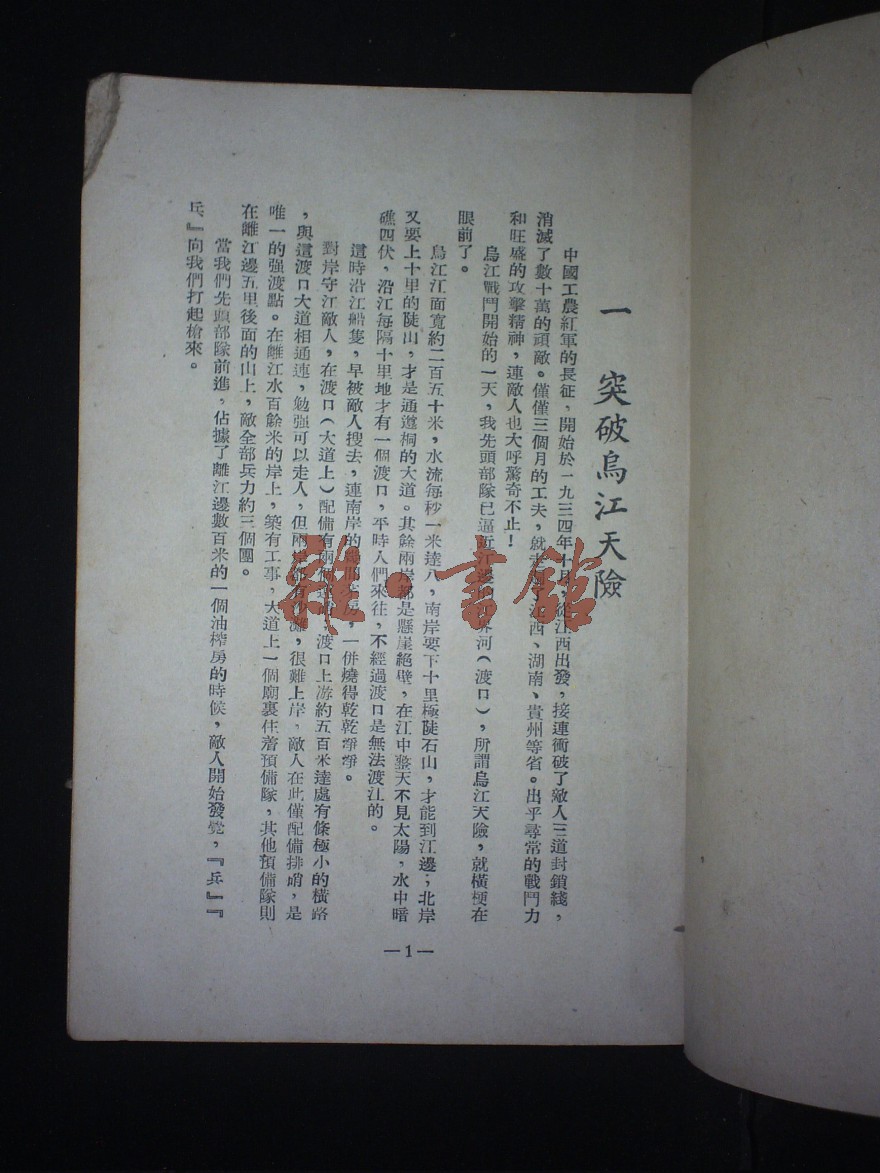 一 突破烏江天險
中國工農紅軍的長征，開始於一九三四年十月，從江西出發，接連衝破了敵人三道封鎖綫，
消滅了數十萬的頑敵。僅僅三個月的工夫，就走過了江西、湖南、貴州等省。出乎尋常的戰鬥力
和旺盛的攻擊精神，連敵人也大呼驚奇不止！
烏江戰鬥開始的一天，我先頭部隊已逼近江邊的界河（渡口），所謂烏江天險，就橫梗在
眼前了。
烏江江面寬約二百五十米，水流每秒一米達八，南岸要下十里極陡石山，才能到江邊；北岸
又要上十里的陡山，才是通遵桐的大道。其餘兩岸都是懸崖絕壁，在江中整天不見太陽，水中暗
礁四伏，沿江每隔十里地才有一個渡口，平時人們來往，不經過渡口是無法渡江的。
這時沿江船隻，早被敵人搜去，連南岸的房，一併燒得乾乾淨淨。
對岸守江敵人，在渡口（大道上）配備有兩個，渡口上游約五百米達處有條極小的橫路
，與這渡口大道相通連，勉强可以走人，但兩岸都有沙灘，很難上岸，敵人在此僅配備排哨，是
唯一的强渡點。在離江水百餘米的岸上，築有工事，大道上一個廟裏住着預備隊，其他預備隊則
在離江邊五里後面的山上，敵全部兵力約三個團。
當我們先頭部隊前進，佔據了離江邊數百米的一個油榨房的時候，敵人開始發覺，『兵』『
兵』向我們打起槍來。
—1—
雜·書館